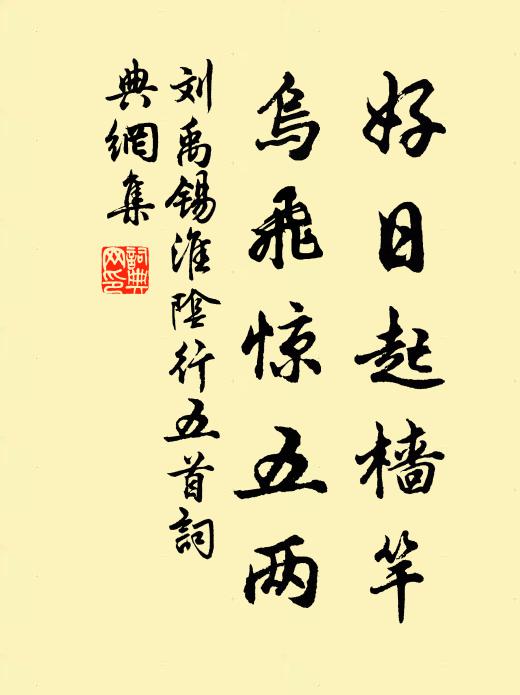 好日起樯竿
乌飞惊五两
刘禹锡淮阴行五首詞
典網集
詞典网印